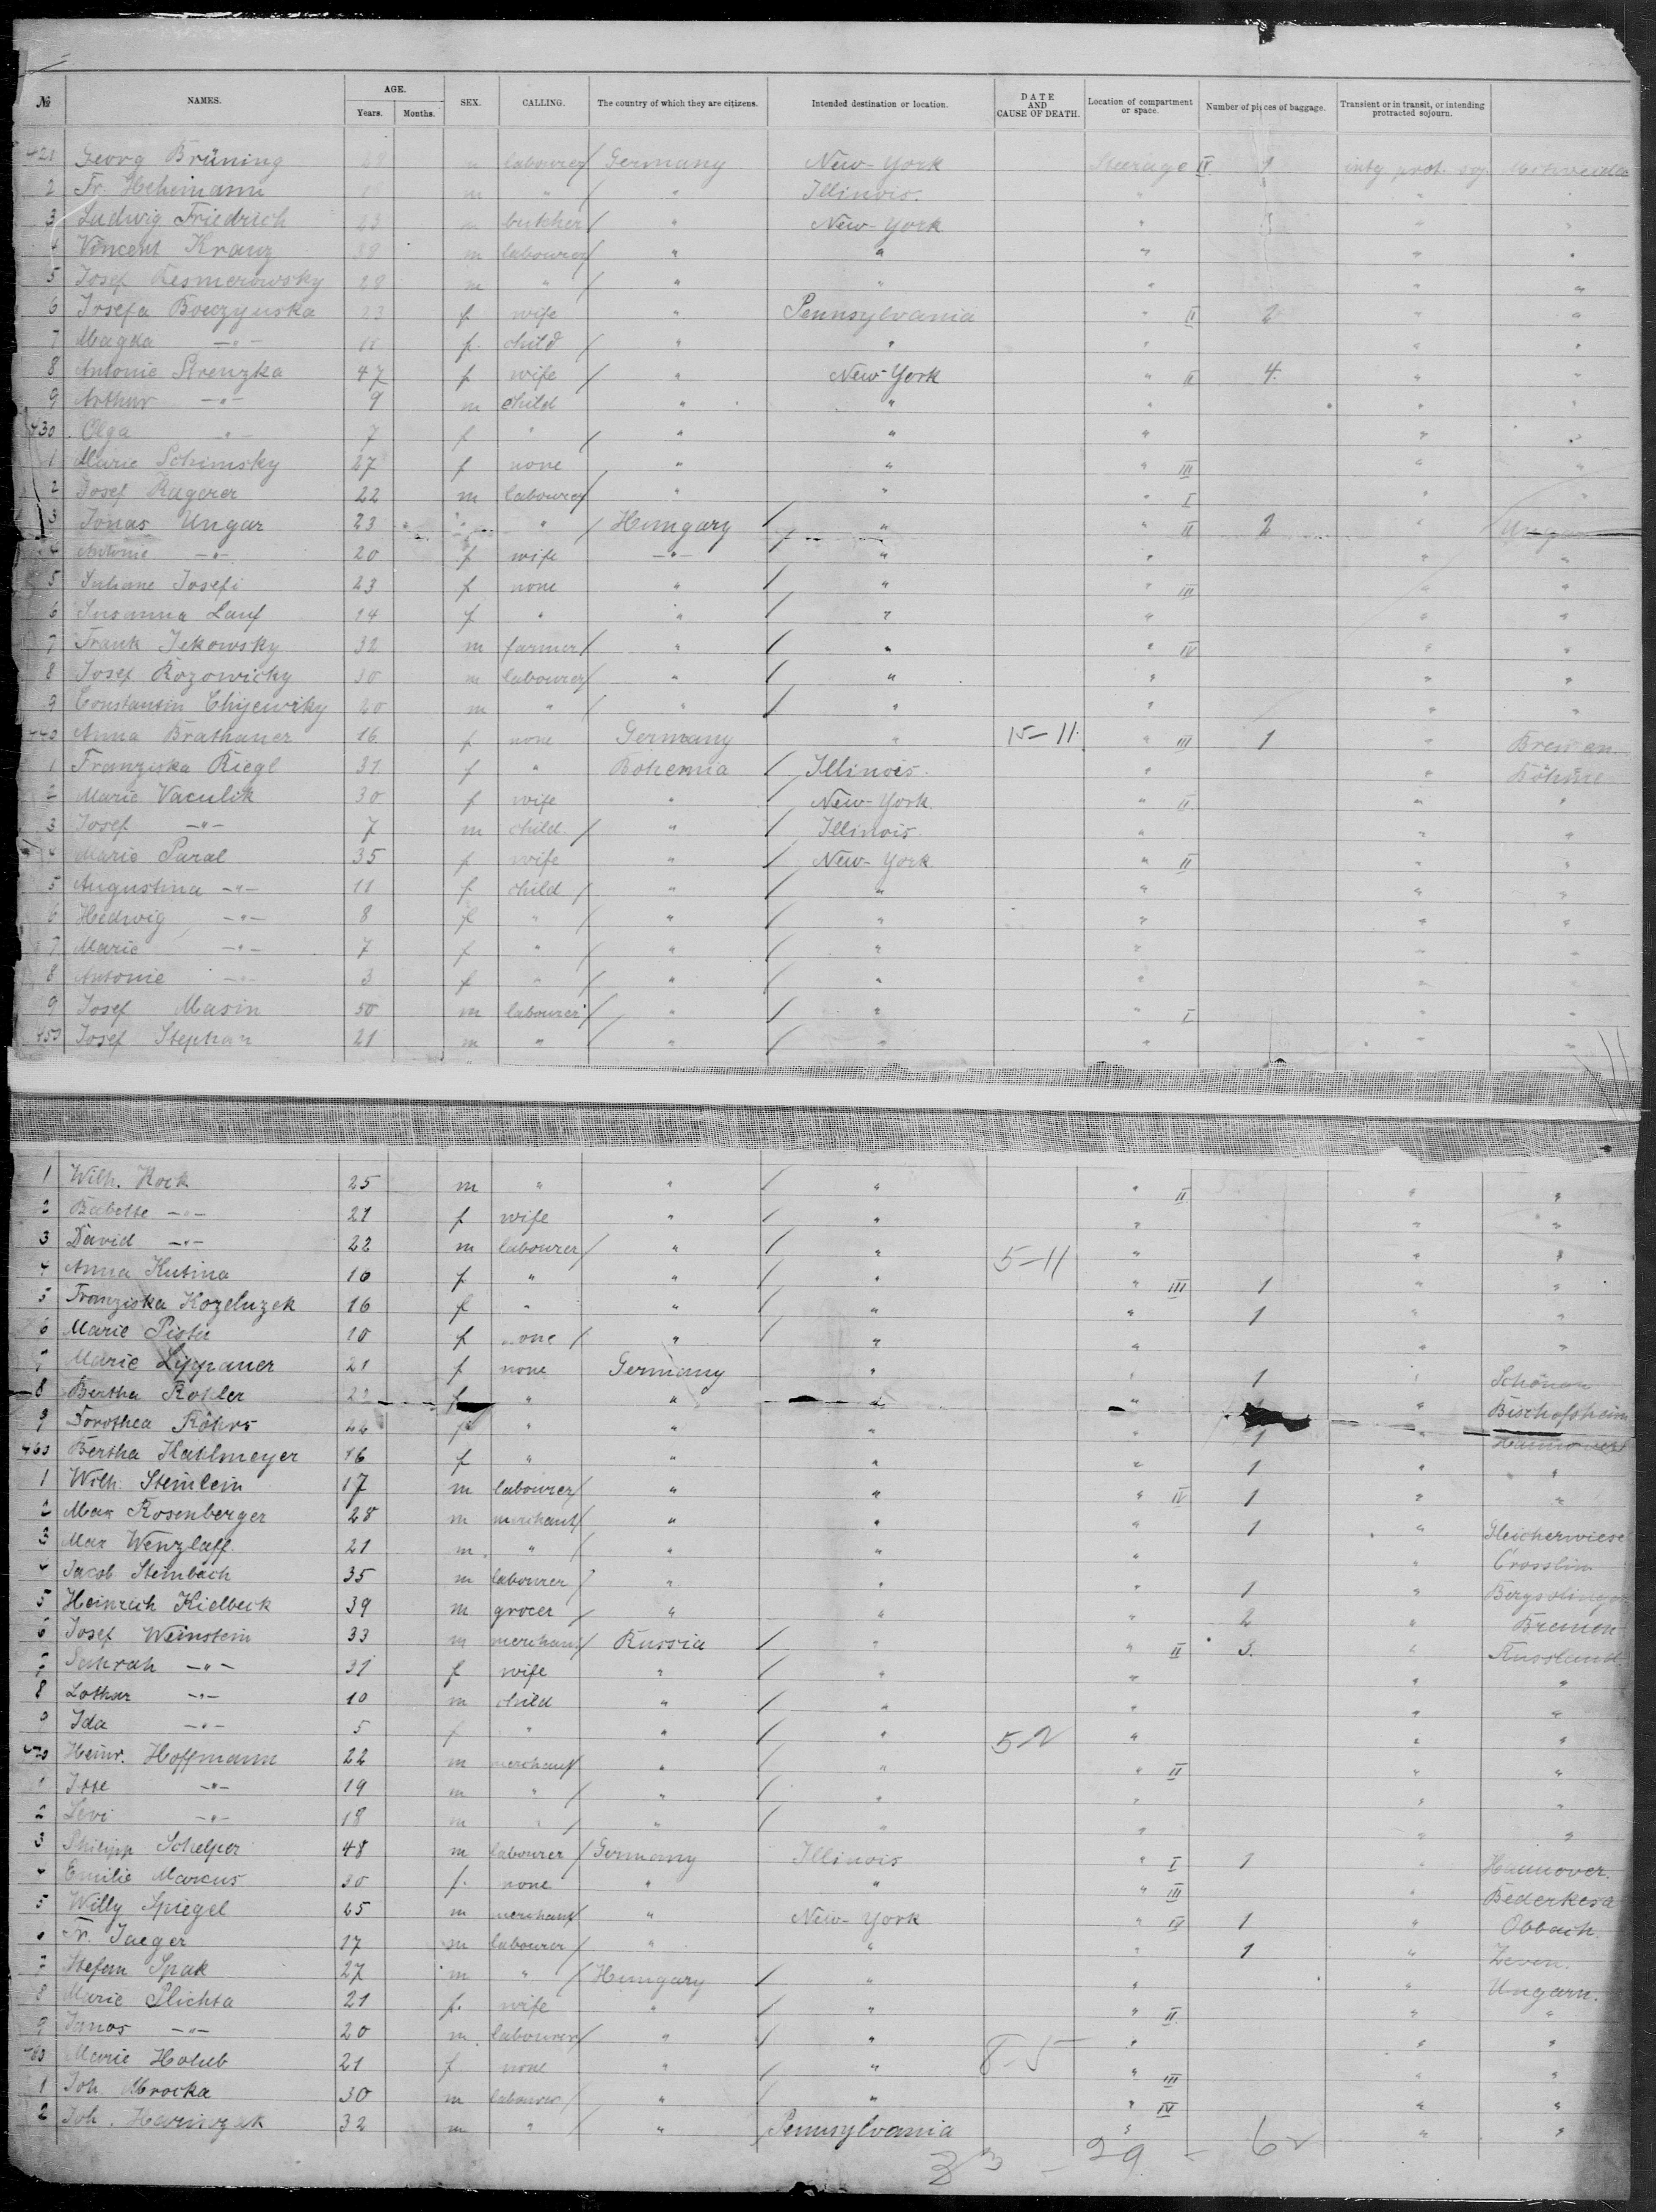 № NAMES. AGE. Years. Months. SEX. CALLING. The country of which they are citizens. Intended destination or location. DATE AND CAUSE OF DEATH. Location of compartment or space. Number of pieces of baggage. Transient or in transit, or intending protracted sojourn.
421 Georg Brüning 28 m labourer / Germany New-York Steerage IV 1 intg prot. soj.
2 Fr. m " / " Illinois. " " "
3 Ludwig Friedrich 23 m butcher / " New-York " " "
4 Vincent Kranz 38 m labourer / " " " " "
5 Josef 28 m " / " " " " "
6 Josefa 23 f wife " Pennsylvania " II 2 " "
7 Magda —"— 11 f. child / " " " " "
8 Antonie Strenzka 47 f wife / " New-York " II 4. " "
9 Arthur —"— 9 m child " " " " "
430 Olga —"— 7 f " / " " " " "
1 Marie Schimsky 27 f none " " " III " "
2 Josef Ragerer 22 m labourer / " " " I " "
3 Jonas Ungar 23 " " / Hungary / " " II 2 " Ungarn
4 Antonie —"— 20 f wife —"— / " " " "
5 Juliane Josefi 23 f none " / " " III " "
6 Susanna Lauf 14 f " " / " " " "
7 Frank Jekowsky 32 m farmer / " / " " IV " "
8 Josef Rozowicky 30 m labourer / " / " " " "
9 Constantin 20 m " / " / " " " "
440 Anna Brathauer 16 f none Germany " 15-11. " III 1 " Bremen.
1 Franziska Riegl 31 f " Bohemia / Illinois. " " Böhme
2 Marie Vaculik 30 f wife " / New-York " II " "
3 Josef —"— 7 m child / " / Illinois. " " "
4 Marie Paral 35 f wife " / New-York " II " "
5 Augustina —"— 11 f child / " / " " " "
6 Hedwig —"— 8 f " / " / " " " "
7 Marie —"— 7 f " / " / " " " "
8 Antonie —"— 3 f " / " / " " " "
9 Josef Masin 50 m labourer / " / " " I " "
450 Josef Stephan 21 m " / " / " " " "
1 Wilh. Hock 25 m " " / " " II " "
2 Babette —"— 21 f wife " / " " " "
3 David —"— 22 m labourer / " / " 5-11 " " "
4 Anna Kutina 16 f " " / " " III 1 " "
5 Franziska Kozeluzek 16 f " " / " " 1 " "
6 Marie Pistu 10 f none / " / " " " "
7 Marie Lippauer 21 f none Germany " " 1 " Schönau
8 Bertha 22 f " " " " " Bischofsheim
9 Dorothea Röhrs f " " " " 1 " Hannover
460 Bertha Kahlmeyer 16 f " " " " 1 " "
1 Wilh. Steinlein 17 m labourer / " " " IV 1 " "
2 Max Rosenberger 28 m merchant / " " " 1 " Gleicherwiese
3 Max Wenzlaff 21 m. " / " " " " Crosslin
4 Jacob Steinbach 35 m labourer / " " " 1 "
5 Heinrich Kielbeck 39 m grocer / " " " 2 " Bremen
6 Josef Weinstein 33 m merchant / Russia / " " II 3. " Russland.
7 Sahrah —"— 31 f wife " / " " " "
8 Lothar —"— 10 m child " / " " " "
9 Ida —"— 5 f " " / " 52 " " "
470 Heinr. Hoffmann 22 m merchant " / " " II " "
1 —"— 19 m " / " / " " " "
2 Levi —"— 18 m " / " / " " " "
3 Philipp Schelper 48 m labourer / Germany Illinois " I 1 " Hannover.
4 Emilie Marcus 30 f. none " " " III " Bederkesa
5 Willy Spiegel 25 m merchant " New-York " IV 1 " Obbach
6 Fr. Jaeger 17 m labourer / " " " 1 " Zeven.
7 Stefan Spak 27 m " / Hungary / " " " Ungarn.
8 Marie Plichta 21 f. wife " / " " II. " "
9 Janos —"— 20 m labourer / " / " " " "
480 Marie Holub 21 f none " / " 8-5 " III " "
1 Joh. Mrocka 30 m labourer / " / " " IV " "
2 Joh. 32 m " / " / Pennsylvania " " "
- 29 - 62